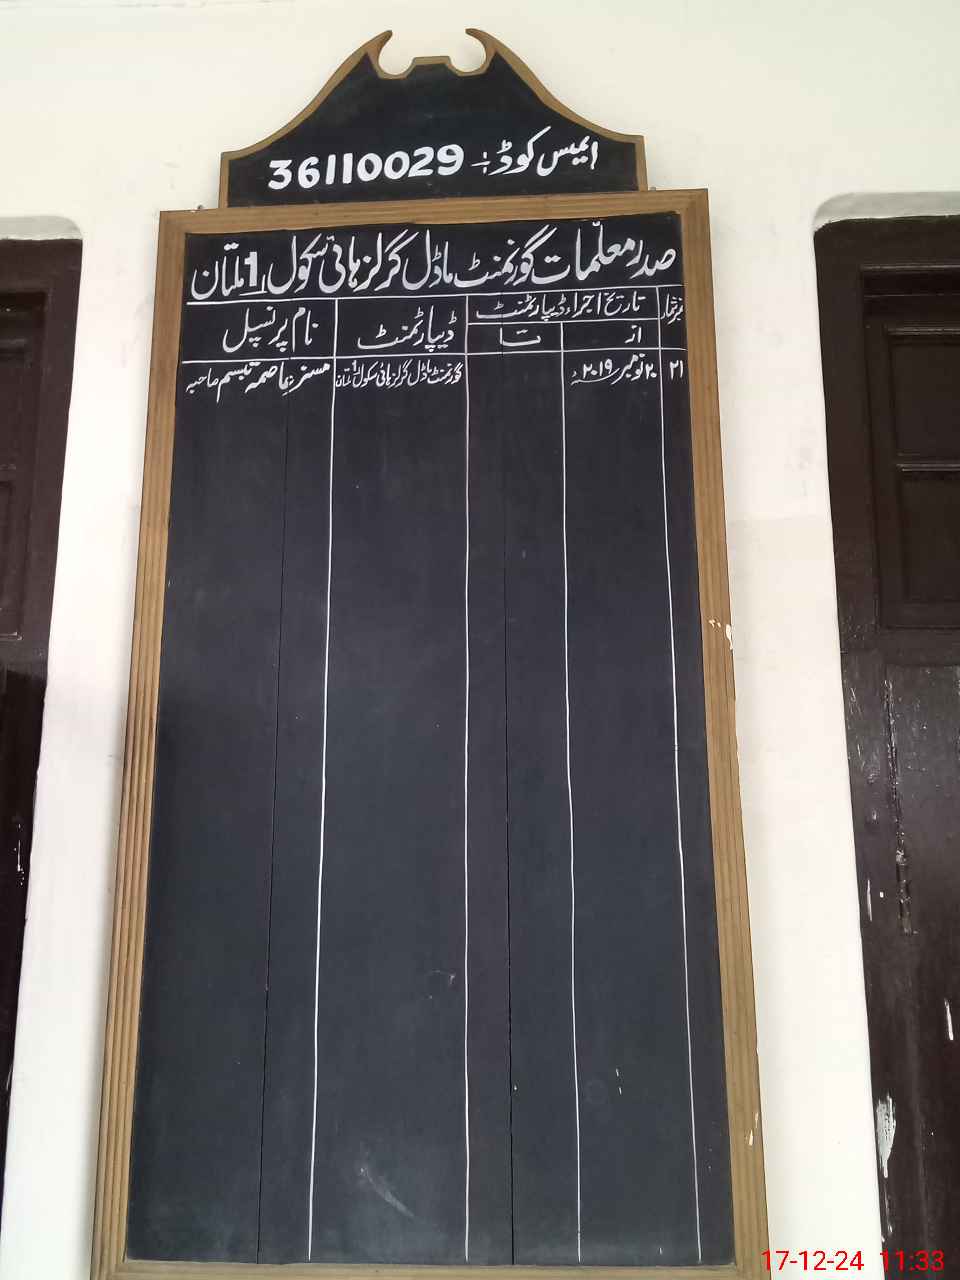 ایمیس کوڈ :۔ 36110029
صدر معلّمات گورنمنٹ ماڈل گرلز ہائی سکول 1 ملتان
نمبر شمار تاریخ اجراء ڈیپارٹمنٹ ڈیپارٹمنٹ نام پرنسپل
از تا
۲۱ ۲۰ نومبر ۲۰۱۹ء گورنمنٹ ماڈل گرلز ہائی سکول 1 ملتان مسز عاصمہ تبسم صاحبہ
17-12-24 11:33